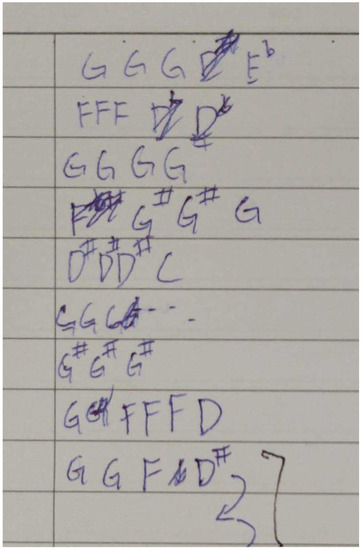 G G G E♭
FFF D♭
G G G G
F G# G# G
D# D# D# C
G G G - - -
G# G# G#
G F F F D
G G F D#